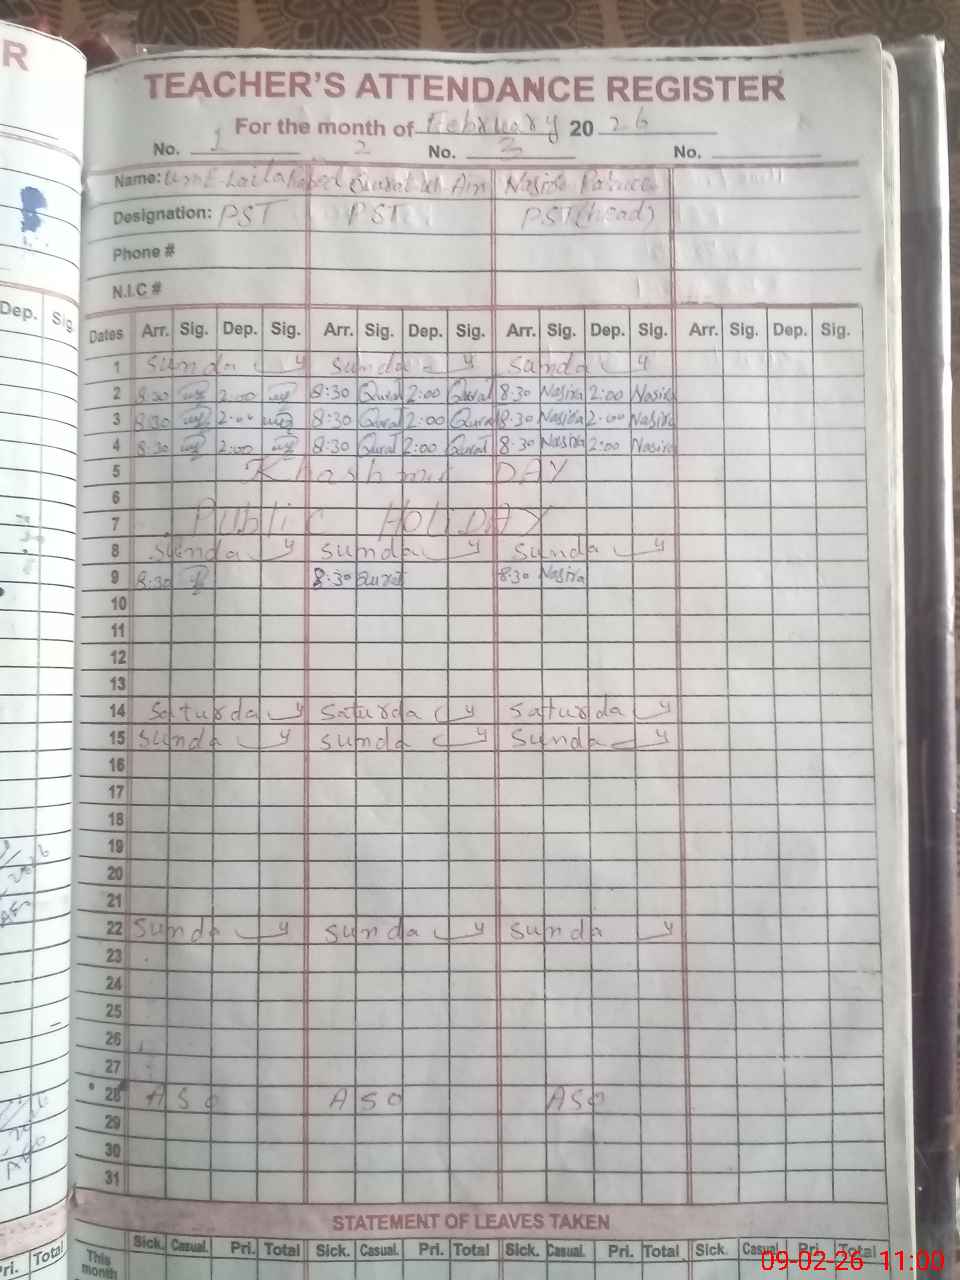 R
TEACHER'S ATTENDANCE REGISTER
For the month of February 20 26
No. 1 2 No. 3 No.
Name:
Designation: PST PST PST (head)
Phone #
N.I.C #
Dep. Sig.
Dates Arr. Sig. Dep. Sig. Arr. Sig. Dep. Sig. Arr. Sig. Dep. Sig. Arr. Sig. Dep. Sig.
1 Sunday Sunday Sunday
2 8:30 2:00 8:30 Qurat 2:00 Qurat 8:30 Nasira 2:00 Nasira
3 8:30 2:00 8:30 Qurat 2:00 Qurat 8:30 Nasira 2:00 Nasira
4 8:30 2:00 8:30 Qurat 2:00 Qurat 8:30 Nasira 2:00 Nasira
5 Khashmir DAY
6
7 Public HOLIDAY
8 Sunday Sunday Sunday
9 8:30 8:30 Qurat 8:30 Nasira
10
11
12
13
14 Saturday Saturday Saturday
15 Sunday Sunday Sunday
16
17
18
19
20
21
22 Sunday Sunday Sunday
23
24
25
26
27
28 A S O A S O A S O
29
30
31
STATEMENT OF LEAVES TAKEN
Sick. Casual. Pri. Total Sick. Casual. Pri. Total Sick. Casual. Pri. Total Sick. Casual. Pri. Total
This month
Pri. Total
09-02-26 11:00